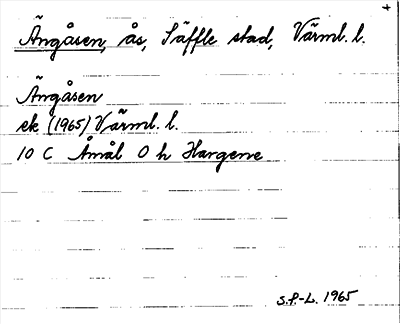 +
Ängåsen, ås, Säffle stad, Värml. l.
Ängåsen
ek (1965) Värml. l.
10 C Åmål O h Hargene
S.P.-L. 1965